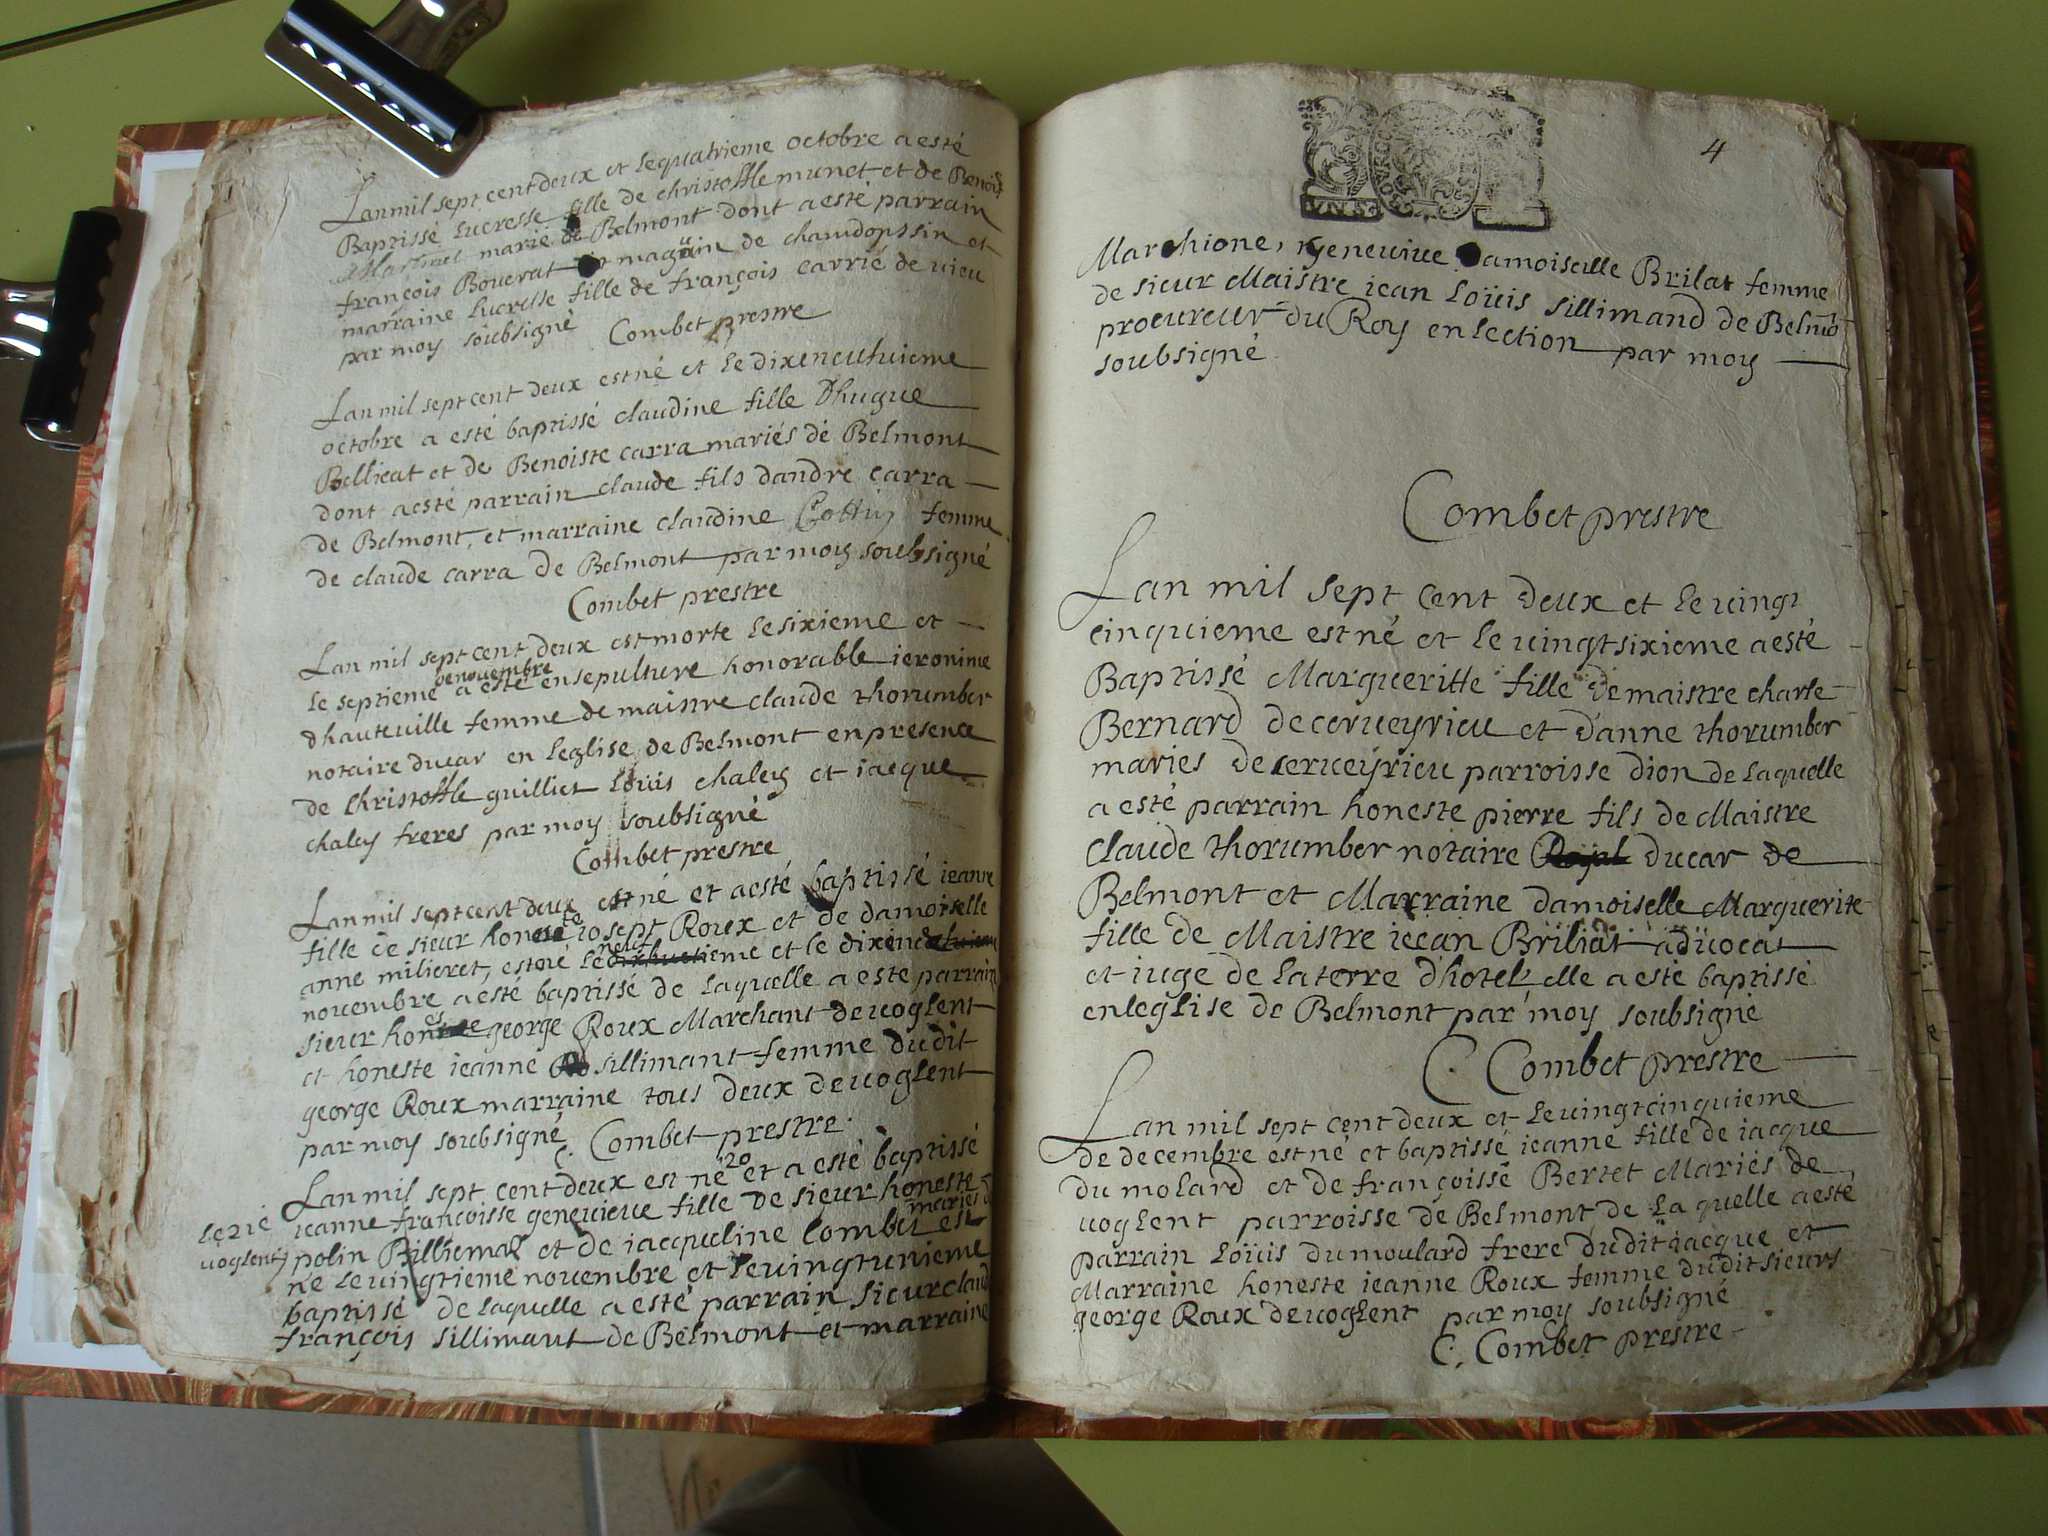 Lan mil sept cent deux et le quatrieme octobre a esté
Baptissé Lucresse fille de christoffle munet et de Benoiste
marié de Belmont dont a esté parrain
françois Bouerat magüin de chamdossin et
marraine Lucresse fille de françois carrié de vieu
par moy soubsigné Combet prestre
Lan mil sept cent deux est né et le dixeneufuieme
octobre a esté baptissé claudine fille Dhugue
Bellicat et de Benoiste carra mariés de Belmont
dont a esté parrain claude fils dandre carra
de Belmont, et marraine claudine Cottin femme
de claude carra de Belmont par moy soubsigné
Combet prestre
Lan mil sept cent deux est morte le sixieme et
de nouembre
le septieme a esté ensepulture honorable ieronime
dhauteville femme de maistre claude thorumber
notaire ducar en leglise de Belmont en presence
de christoffle guilliet Loüis chaley et iacque
chaley freres par moy soubsigné
Combet prestre
Lan mil sept cent deux est né et a esté baptissé ieanne
fille de sieur honeste iosept Roux et de damoiselle
anne milieret, est né le neufieme et le dixieme
nouembre a esté baptissé de Laquelle a este parrain
sieur hones george Roux Marchant de uoglent
et honeste ieanne sillimant femme dudit
george Roux marraine tous deux de uoglent
par moy soubsigné C. Combet prestre.
Lan mil sept cent deux est né 20 et a esté baptissé
ieanne françoisse geneuieue fille de sieur honeste
mariés d
polin Billiemaz et de iacqueline Combet est
uoglent,
né le uingtieme nouembre et le uingtunieme
baptissé de laquelle a esté parrain sieur claud
françois sillimant de Belmont et marraine
4
Marchione, geneuiue Damoiselle Brilat femme
de sieur Maistre iean Loüis sillimand de Belmo
procureur du Roy en lection par moy
soubsigné
Combet prestre
Lan mil sept cent deux et le uingt
cinquieme est né et le uingtsixieme a esté
Baptissé Margueritte fille de maistre charle
Bernard de cerueyrieu et d'anne thorumber
maries de cerueyrieu parroisse dion de laquelle
a esté parrain honeste pierre fils de Maistre
Claude thorumber notaire Royal ducar de
Belmont et Marraine damoiselle Marguerite
fille de Maistre iean Briliat aduocat
et iuge de la terre d'hotel elle a esté baptissé
en leglise de Belmont par moy soubsigné
C. Combet prestre
Lan mil sept cent deux et le uingtcinquieme
de decembre est né et baptissé ieanne fille de iacque
du molard et de françoisse Bertet Mariés de
uoglent parroisse de Belmont de la quelle a esté
parrain Loüis dumoulard frere dudit iacque et
Marraine honeste ieanne Roux femme dudit sieurs
george Roux de uoglent par moy soubsigné
C. Combet prestre